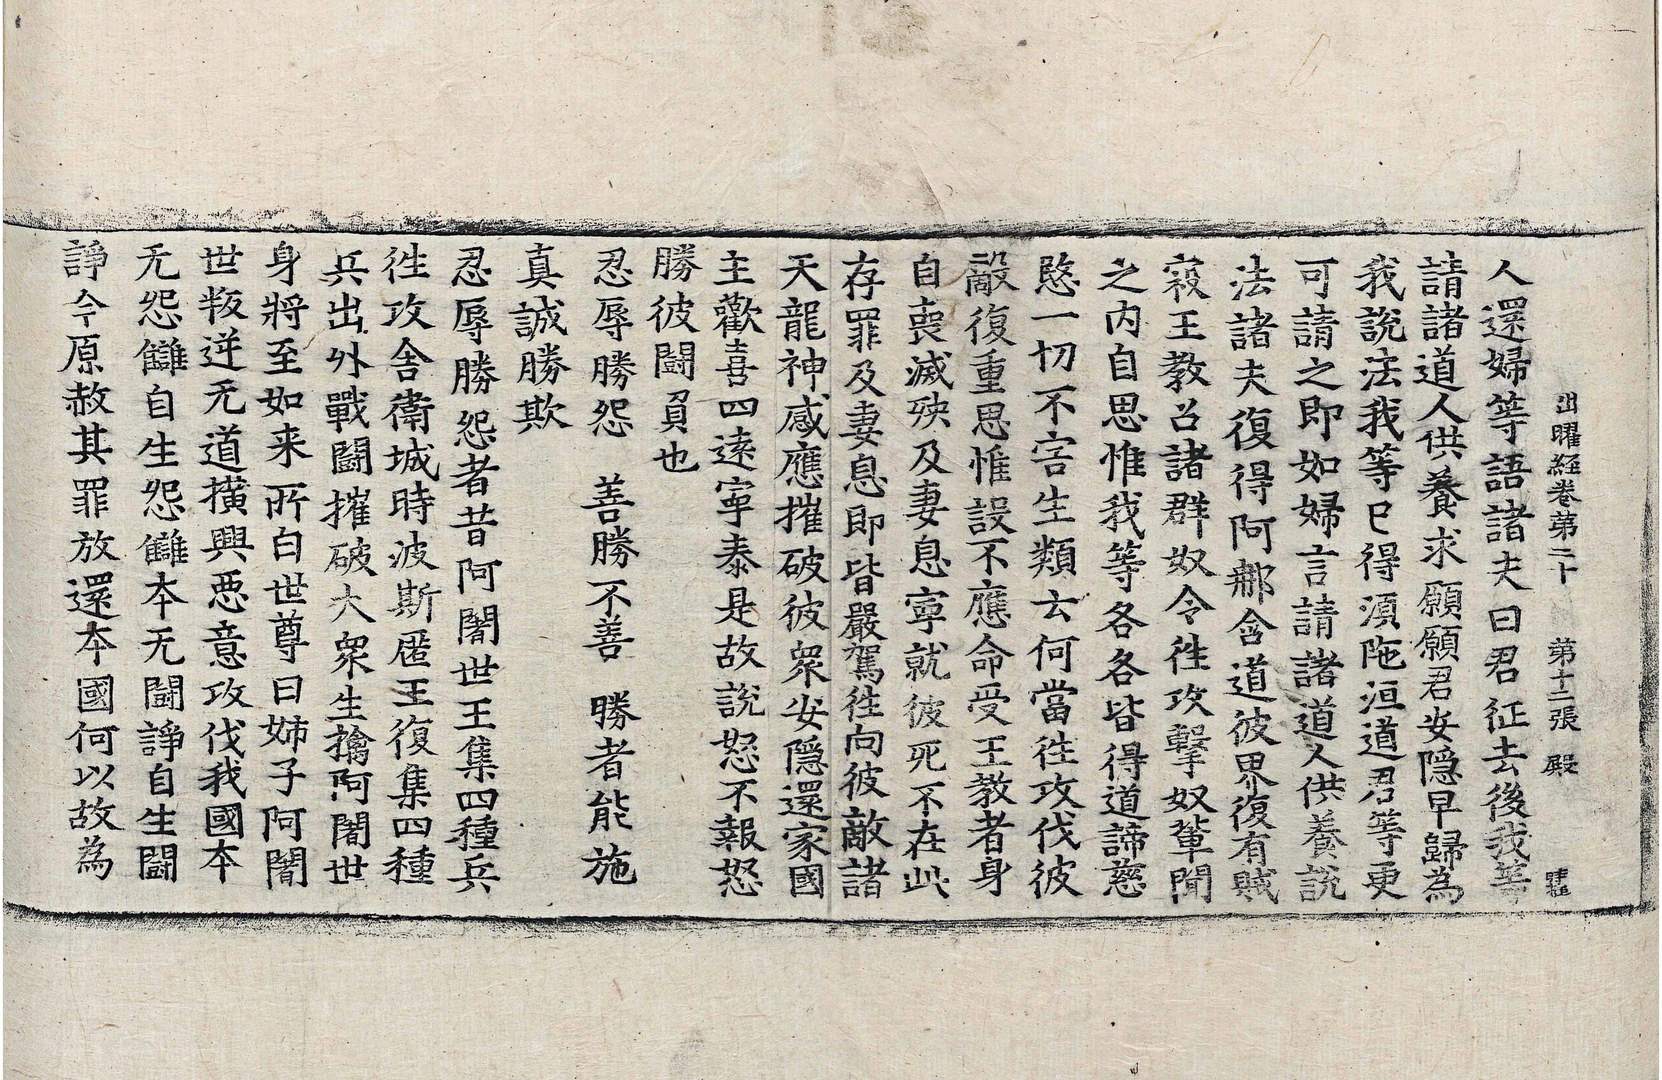 出曜経卷第二十 第十二張 殿
人還婦等語諸夫曰君征去後我等
請諸道人供養求願願君安隠早歸為
我說法我等已得湏陁洹道君等更
可請之即如婦言請諸道人供養說
法諸夫復得阿郍含道彼界復有賊
寇王教召諸群奴令徃攻擊奴軰聞
之内自思惟我等各各皆得道諦慈
愍一切不害生類云何當往攻伐彼
敵復重思惟設不應命受王教者身
自喪滅殃及妻息寧就彼死不在此
存罪及妻息即皆嚴駕往向彼敵諸
天龍神感應摧破彼衆安隱還家國
主歡喜四逺寧泰是故說怒不報怒
勝彼鬪負也
忍辱勝怨 善勝不善 勝者能施
真誠勝欺
忍辱勝怨者昔阿闍世王集四種兵
徃攻舍衛城時波斯匿王復集四種
兵出外戰鬪摧破大衆生擒阿闍世
身將至如来所白世尊曰姊子阿闍
世叛逆无道擅興惡意攻伐我國本
无怨讎自生怨讎本无鬪諍自生鬪
諍今原赦其罪放還本國何以故為